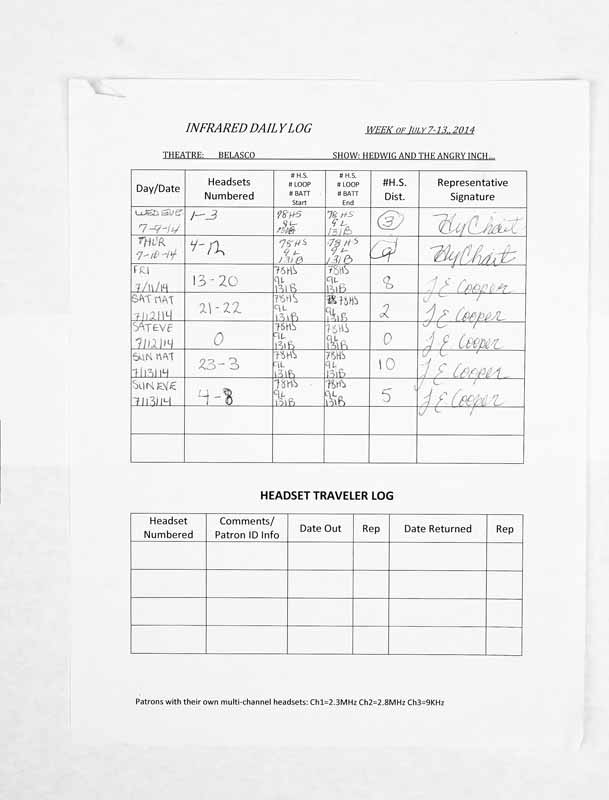 INFRARED DAILY LOG WEEK OF JULY 7-13,, 2014
THEATRE: BELASCO SHOW: HEDWIG AND THE ANGRY INCH...
Day/Date
Headsets
Numbered
# H.S.
# LOOP
# BATT
Start
# H.S.
# LOOP
# BATT
End
#H.S.
Dist.
Representative
Signature
WED EVE
7-9-14
1-3
78HS
9L
131B
78HS
9L
131B
3
THUR
7-10-14
4-12
78HS
9L
131B
78HS
9L
131B
9
FRI
7/11/14
13-20
78HS
9L
131B
78HS
9L
131B
8
J E Cooper
SAT MAT
7/12/14
21-22
78HS
9L
131B
78HS
9L
131B
2
J E Cooper
SAT EVE
7/12/14
0
78HS
9L
131B
78HS
9L
131B
0
J E Cooper
SUN MAT
7/13/14
23-3
78HS
9L
131B
78HS
9L
131B
10
J E Cooper
SUN EVE
7/13/14
4-8
78HS
9L
131B
78HS
9L
131B
5
J E Cooper
HEADSET TRAVELER LOG
Headset
Numbered
Comments/
Patron ID Info
Date Out
Rep
Date Returned
Rep
Patrons with their own multi-channel headsets: Ch1=2.3MHz Ch2=2.8MHz Ch3=9KHz